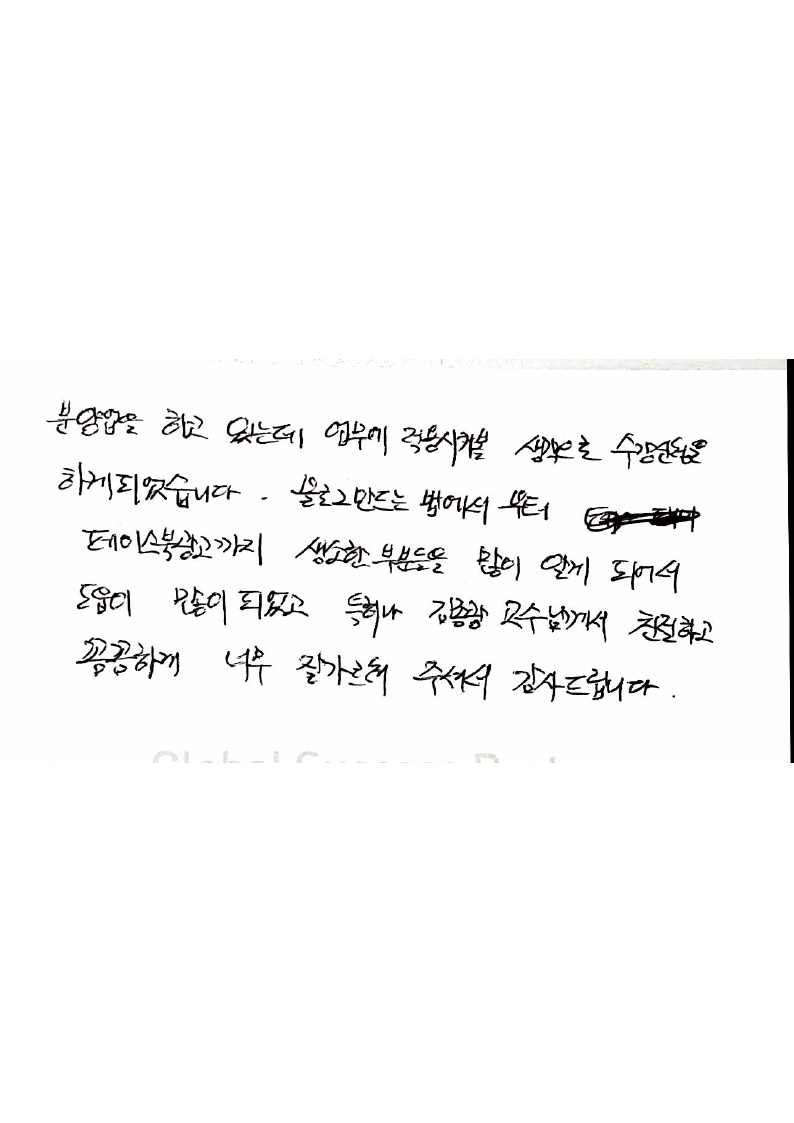 분양업을 하고 있는데 업무에 적용시켜볼 생각으로 수강신청을
하게되었습니다. 블로그만드는 법에서 부터
페이스북광고까지 생소한 부분들을 많이 알게 되어서
도움이 많이 되었고 특히나 김종광 교수님께서 친절하고
꼼꼼하게 너무 잘가르쳐 주셔서 감사드립니다.